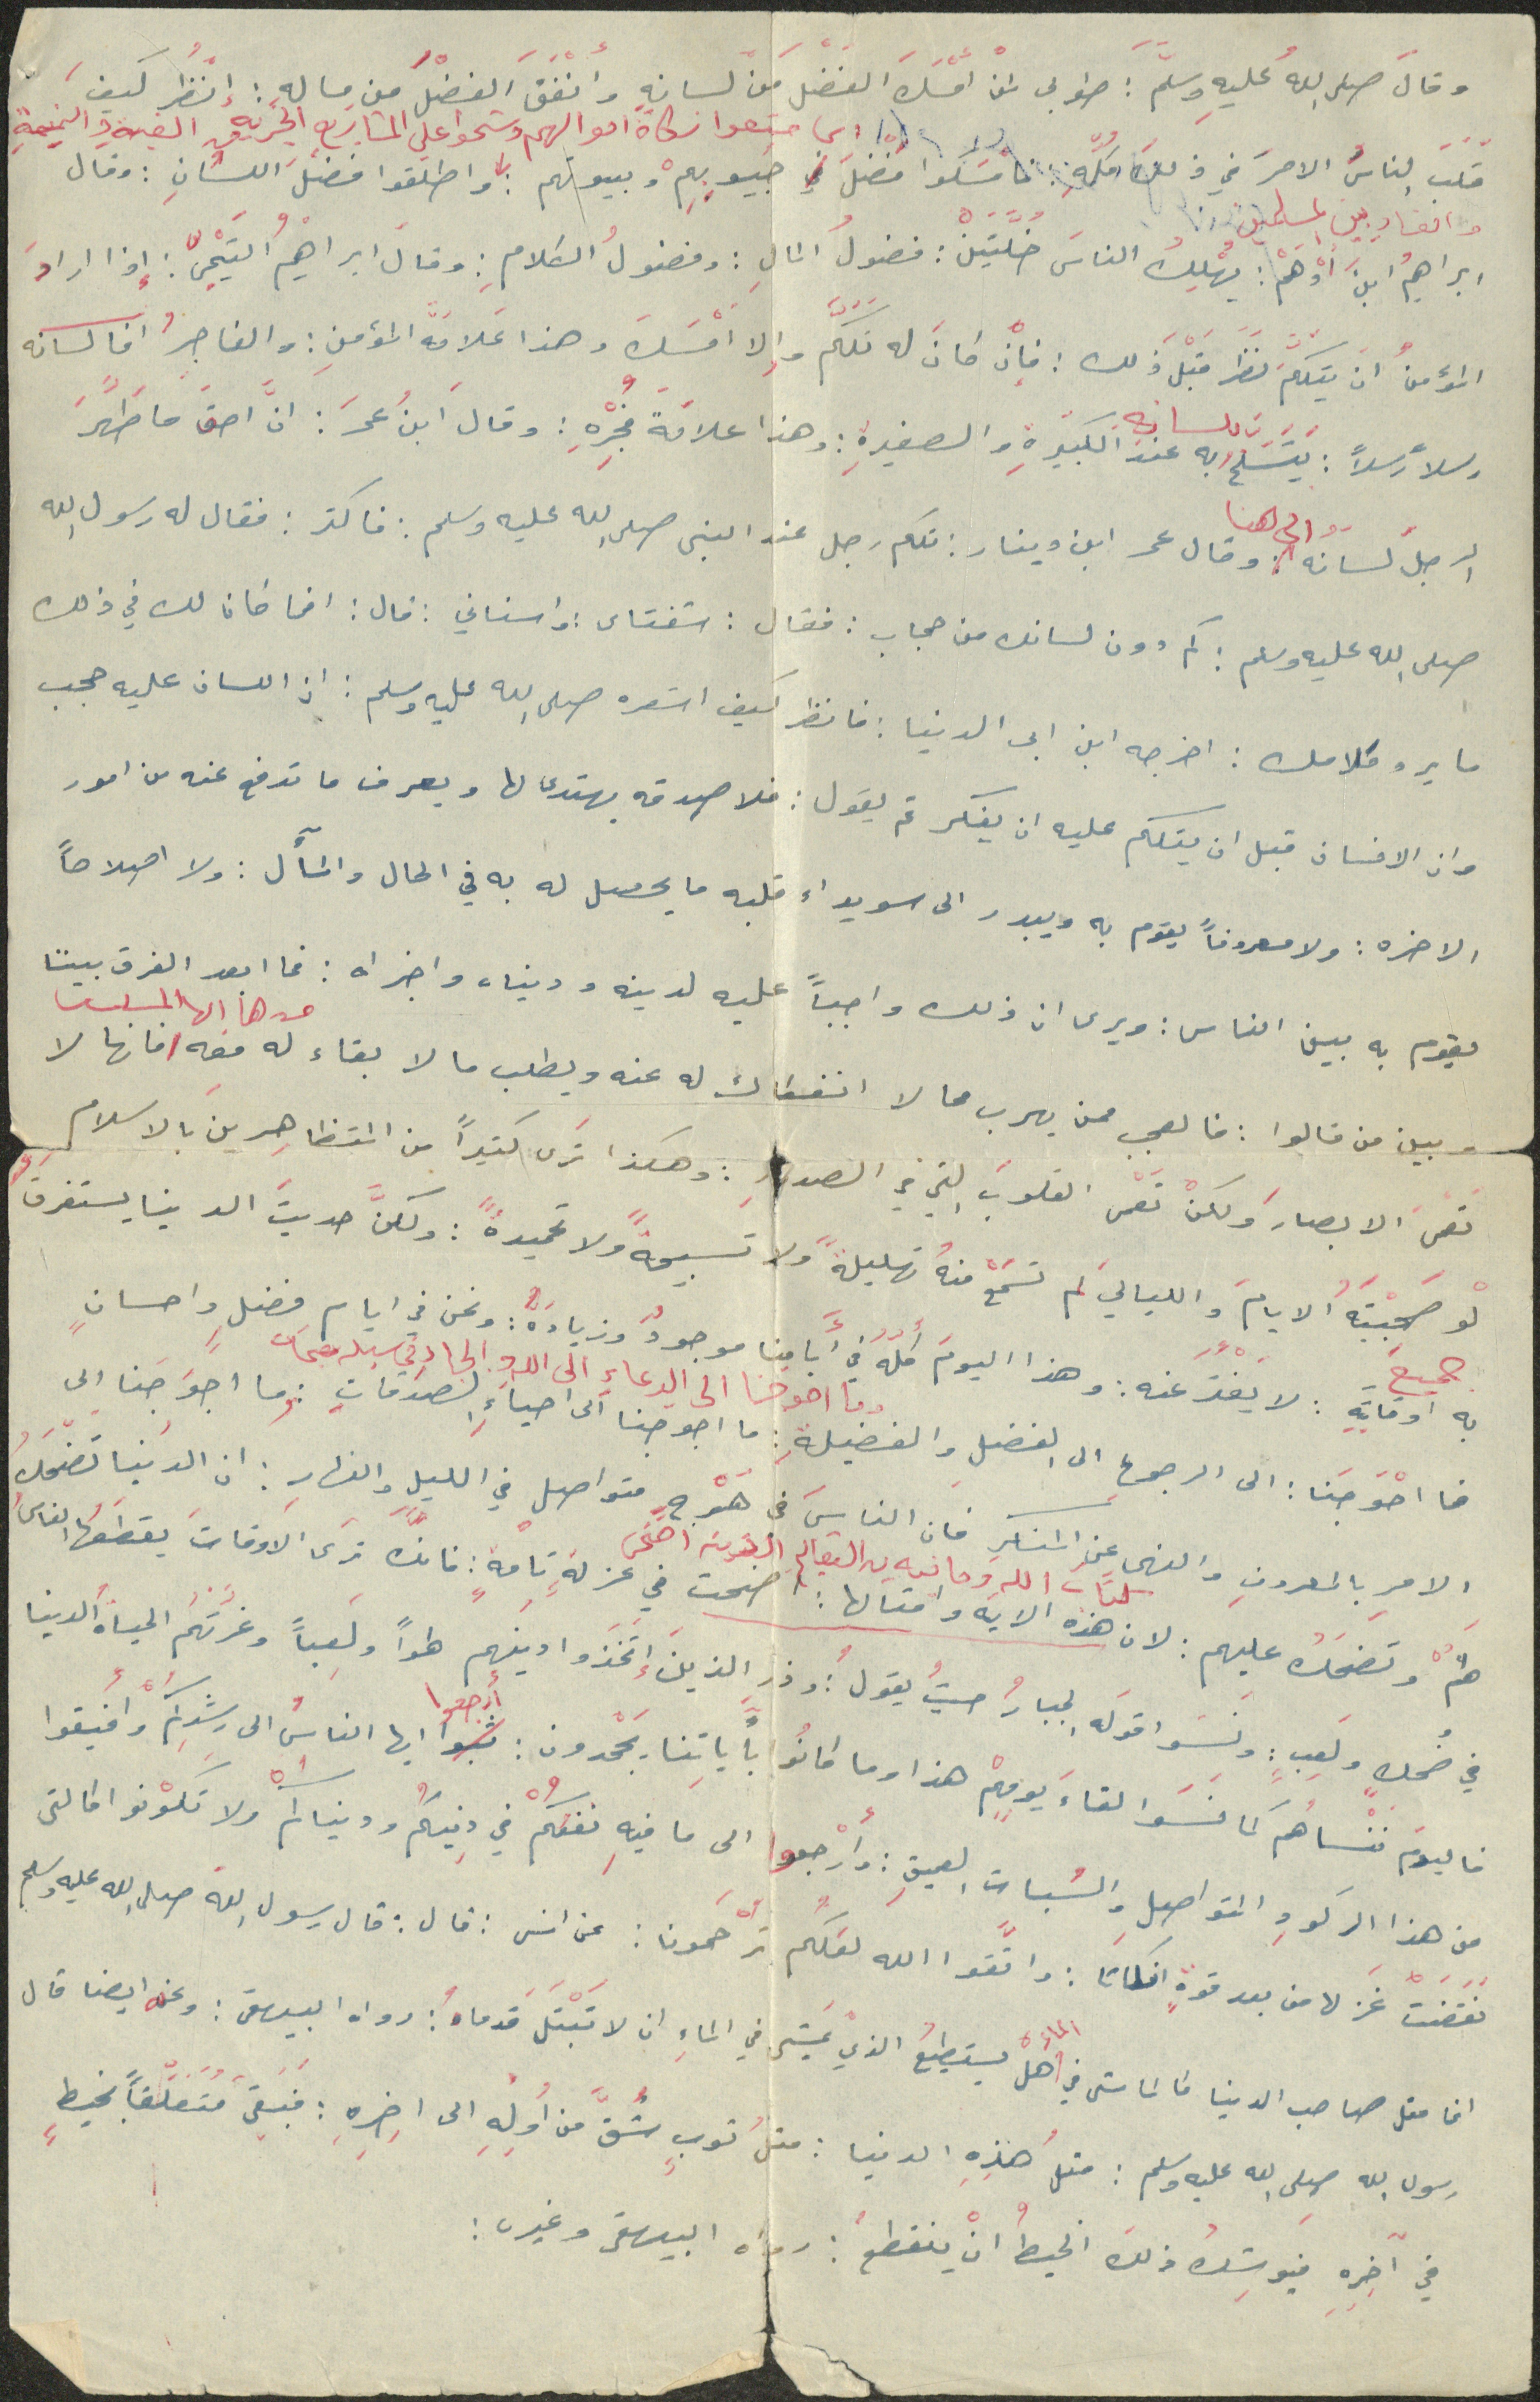 وقالَ صلى اللهُ عليهِ وسلَّمَ : طوبى لمنْ أمْسَكَ الفَضْلَ مَنْ لسانهِ وانْفَقَ الفضْلَ مَنْ مالهِ : إنْظُر كيفَ
اي منعوا زكاةَ اموالهم وشحوا على المشاريع الخيريه في الغيبةِ والنميمةِ
قَلَبَ الناسُ الامرَ في ذلكَ كلّهِ : فأمْسَكوا فضْلَ جيوبِهِمْ وبيوتهم : واطلقوا فضْلَ اللسَانِ : وقال
والفساد بين المسلمين
ابراهيمُ ابنَ أدْهَمْ : يُهْلِكُ الناسَ خُلَّتَيْنْ : فضولُ المالِ : وفضولُ الكلامِ : وقالَ ابراهيمُ التيْمِيّ : إذا ارادَ
المؤمنُ انْ يتكلّمَ نظرَ قبْلَ ذلك : فإنْ كانَ لهُ تكَلَّمَ وإلا أمْسَكَ وهذا عَلامَةُ المؤمنِ : والفاجرُ انما لسانه
رسلاً رسلاً : يتسلحُ به عندَ الكبيرةِ والصغيرةِ : وهذا علامَةَ فُجْرِهِ : وقالَ ابنُ عمرَ : انَّ احقَ ما طَهَّرَ
بلسانه
الرجلُ لسانَه : وقال عمر ابن دينار : تكلم رجل عند النبى صلى الله عليه وسلم : فاكثر : فقال له رسول الله
الى هنا
صلى الله عليه وسلم : كم دون لسانك من حجاب : فقال : شفتاى : واسناني : قال : افما كان لك في ذلك
ما يرد كلامك : اخرجه ابن ابى الدنيا : فانظر كيف اشعره صلى الله عليه وسلم : ان اللسان عليه حجب
وان الانسان قبل ان يتكلم عليه ان يفكر ثم يقول : فلا صدقه يهتدى لها ويعرف ما تدفع عنه من امور
الاخره : ولا معروفاً يقوم به ويبدر الى سويداء قلبه ما يحصل له به في الحال والمآل : ولا اصلاحاً
يقوم به بين الناس : ويرى ان ذلك واجباً عليه لدينه ودنياه واخراه : فما ابعد الفرق بيننا
وبين من قالوا : فالعجب ممن يهرب مما لا انفكاك له عنه ويطلب ما لا بقاء له معه فانها لا
تعْمى الابصارَ ولكنْ تعْمى القلوبَ التي في الصدورِ : وهكذا ترَى كثيراً من المتظاهِرينَ بالاسلامِ
لوْ صَحِبْتَهُ الايامَ والليالي لم تسْمَعْ منهُ تهليلةً ولا تسبيحةً ولا تحميدةً : ولكنَّ حديثَ الدنيا يستغرقُ
به اوقاتَهِ : لا يفْتُرُ عنه : وهذا اليومَ كلّهُ في أيّامِنا موجودٌ وزيادَةْ : ونحن في ايام فضلٍ واحسانٍ
جميعَ
فما احْوَجَنا : الى الرجوعِ الى الفضلِ والفضيلةِ : ما احوجنا الى احياءِ الصدَقاتِ : وما احوَجَنا الى
وما احوجنا الى الدعاءِ الى اللهِ والجهادِ في سبيله
الامرِ بالمعروفِ والنهى عَنِ المنكرِ فان الناسَ في هَرْجٍ متواصلٍ في الليلِ والنهارِ : ان الدنيا تضْحَكُ
لهُمْ وتضحَكُ عليهم : لان هذه الاية وامثالها : أضحت في عزلةٍ تامةٍ : فانَّكَ ترَى الاوقاتَ يقطعَها الناسُ
في ضُحكٍ ولَعِبٍ : ونَسَوا قولَه الجبارُ حيثُ يقولُ : وذرِ الذينَ إتّخَذوا دينَهم لهواً ولَعِباً وغرَتْهُمُ الحياةُ الدنيا
فاليومَ ننْساهُم كما نَسَوا لقاءَ يومِهِمْ هذا وما كانوا بأياتِنا يجْحَدون : ثبوا ايها الناسُ الى رشدِكُمْ وافيقوا
أرجعوا
من هذا الركودِ المتواصلِ والسُباتِ العميقِ : وأرْجعوا الى ما فيهِ نفعُكُمْ في دِينِكُم ودنياكُمْ ولا تكُونوا كالتى
نقَضَتْ غزلها من بعد قوةٍ انكاثا : واتَّقوا الله لعلَكُم ترْحَمونَ : عن انس : قال : قال رسول اللهِ صلى الله عليه وسلم
انما مثل صاحب الدنيا كالماشى في الماءِ هلْ يستطيعُ الذي يمْشى في الماءِ ان لا تَبْتَلَّ قدماهُ : رواه البيهقى : وعنه ايضا قال
رسول الله صلى الله عليه وسلم : مثلُ هذِهِ الدنيا : مثلُ ثوبٍ شُقَّ من أولِهِ الى اخِرِهِ : فبَقِىَ مُتَعَلِّقاً بخيطٍ
في آخِرِهِ فيوشِكُ ذلكَ الخيطُ انْ ينقطعَ : رواه البيهقى وغيره :